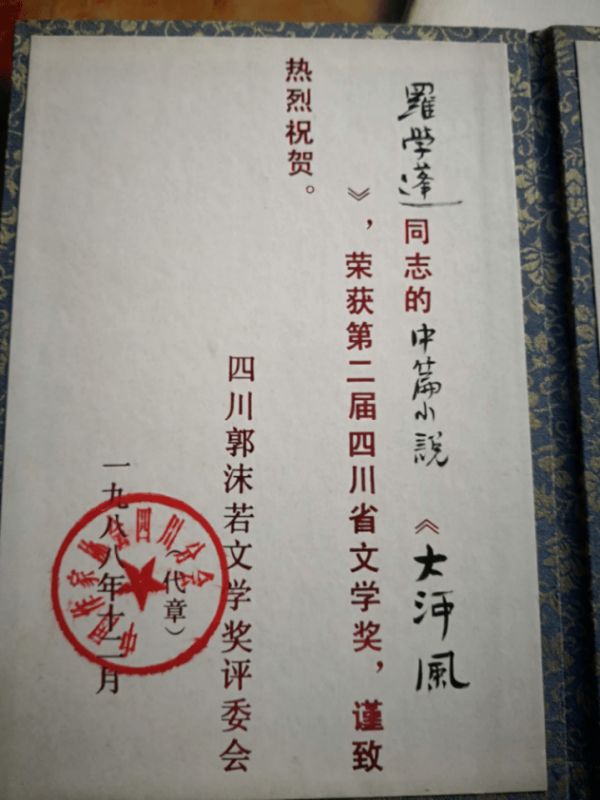 羅学蓬同志的中篇小説《大河風
》，荣获第二届四川省文学奖，谨致
热烈祝贺。
四川郭沫若文学奖评委会
（代章）
一九八八年十二月
中国作家协会四川分会